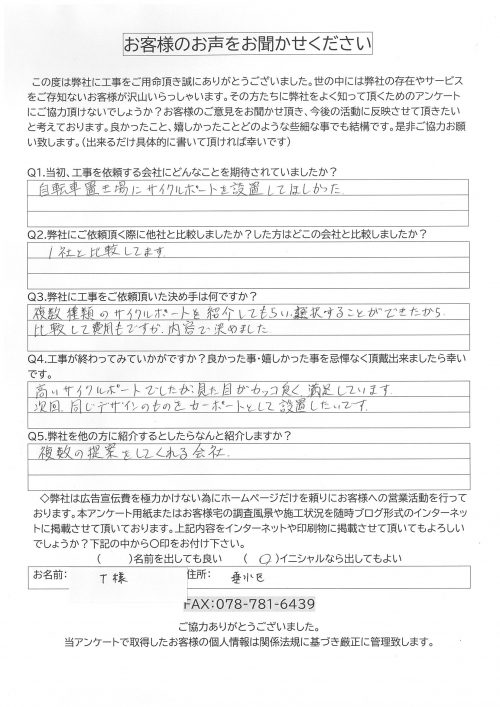 お客様のお声をお聞かせください
この度は弊社に工事をご用命頂き誠にありがとうございました。世の中には弊社の存在やサービス
をご存知ないお客様が沢山いらっしゃいます。その方たちに弊社をよく知って頂くためのアンケート
にご協力頂けないでしょうか？お客様のご意見をお聞かせ頂き、今後の活動に反映させて頂きたい
と考えております。良かったこと、嬉しかったことどのような些細な事でも結構です。是非ご協力お願
い致します。（出来るだけ具体的に書いて頂ければ幸いです）
Q1.当初、工事を依頼する会社にどんなことを期待されていましたか？
自転車置き場にサイクルポートを設置してほしかった
Q2.弊社にご依頼頂く際に他社と比較しましたか？した方はどこの会社と比較しましたか？
1社と比較してます。
Q3.弊社に工事をご依頼頂いた決め手は何ですか？
複数種類のサイクルポートを紹介してもらい、選択することができたから
比較して費用もですが、内容で決めました
Q4.工事が終わってみていかがですか？良かった事・嬉しかった事を忌憚なく頂戴出来ましたら幸い
です。
高いサイクルポートでしたが、見た目がカッコ良く、満足しています。
次回、同じデザインのものをカーポートとして設置したいです。
Q5.弊社を他の方に紹介するとしたらなんと紹介しますか？
複数の提案をしてくれる会社.
◇弊社は広告宣伝費を極力かけない為にホームページだけを頼りにお客様への営業活動を行って
おります。本アンケート用紙またはお客様宅の調査風景や施工状況を随時ブログ形式のインターネッ
トに掲載させて頂いております。上記内容をインターネットや印刷物に掲載させて頂いてもよろしい
でしょうか？下記の中から〇印をお付け下さい。
（　　）名前を出しても良い　（ 〇 ）イニシャルなら出してもよい
お名前： T様 住所： 垂水区
FAX：078-781-6439
ご協力ありがとうございました。
当アンケートで取得したお客様の個人情報は関係法規に基づき厳正に管理致します。